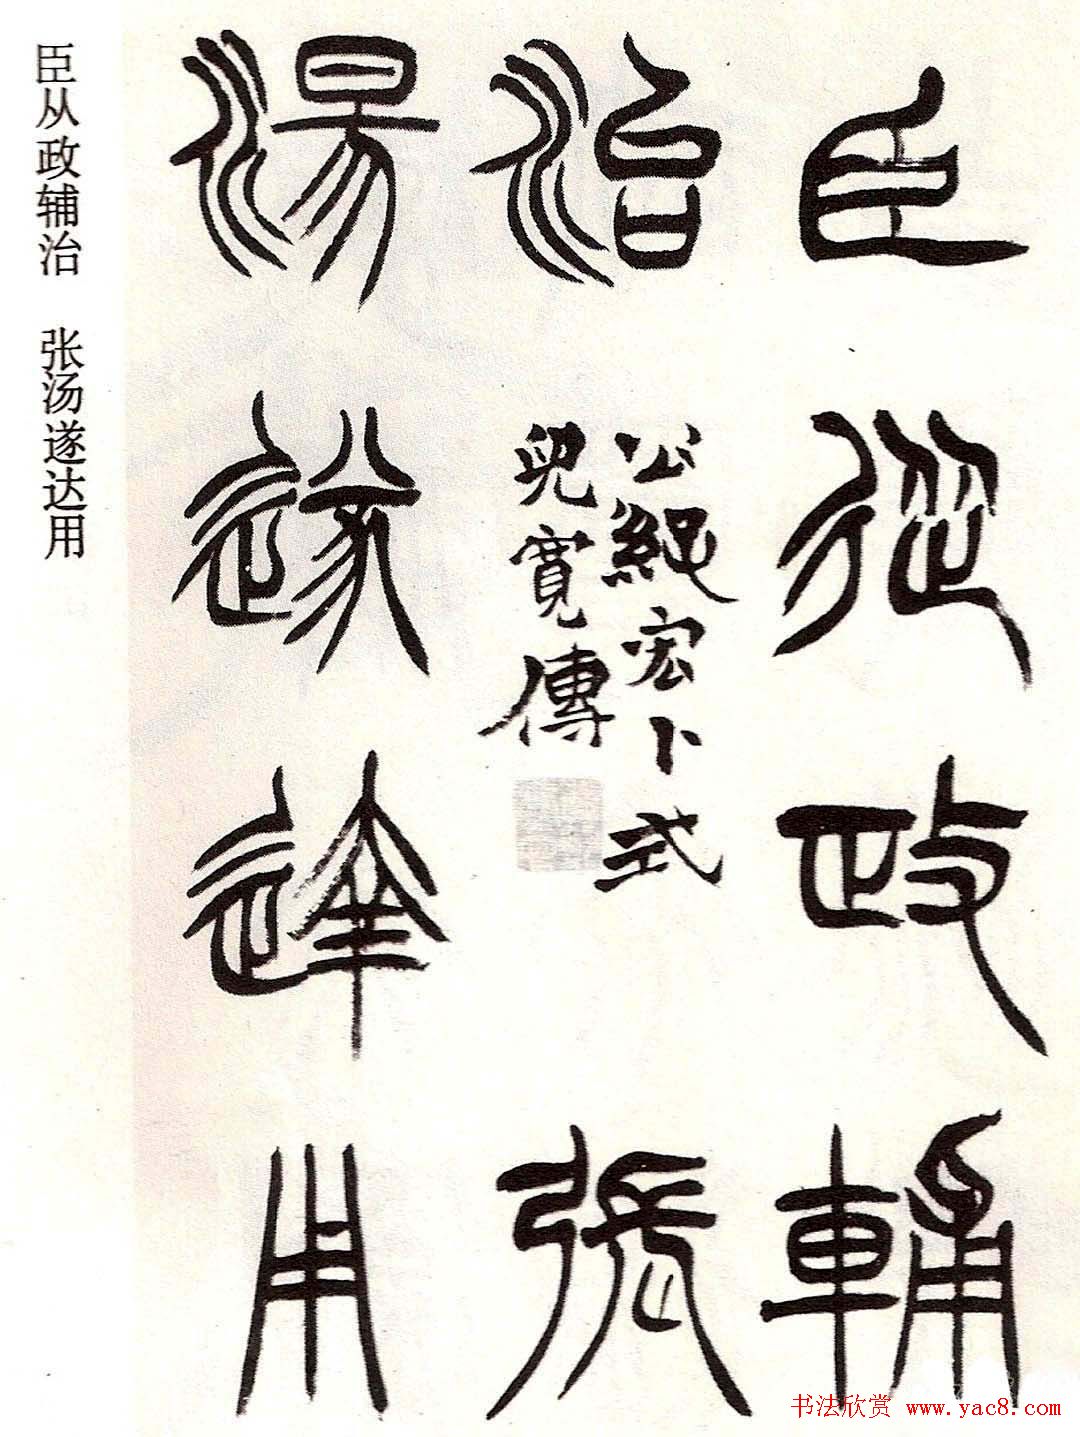 臣從政輔
治
公孫宏卜式
兒寬傳
張
湯遂達用
臣从政辅治 张汤遂达用
书法欣赏 www.yac8.com